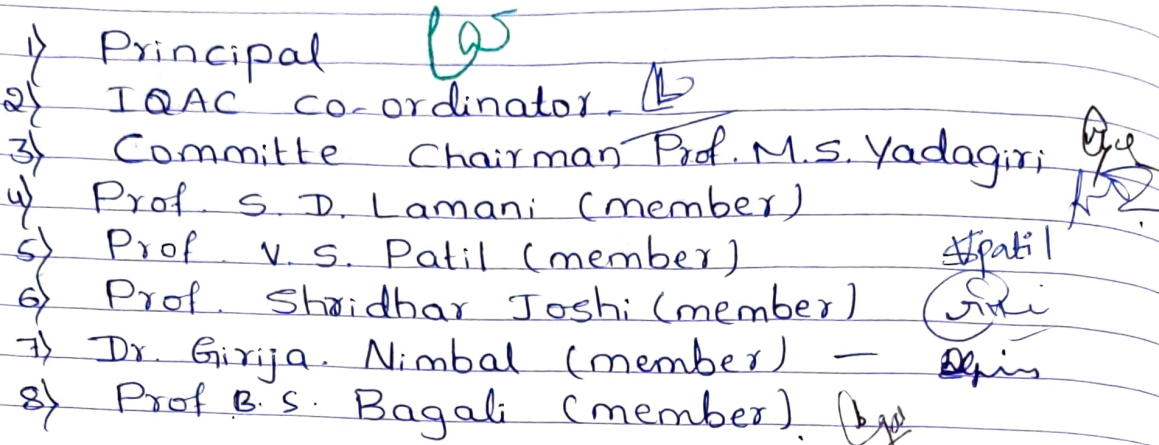 1) Principal
2) IQAC co-ordinator.
3) Committe Chairman Prof. M.S. Yadagiri
4) Prof. S. D. Lamani (member)
5) Prof. V. S. Patil (member) VSpatil
6) Prof. Shridhar Joshi (member)
7) Dr. Girija. Nimbal (member) —
8) Prof B. S. Bagali (member).